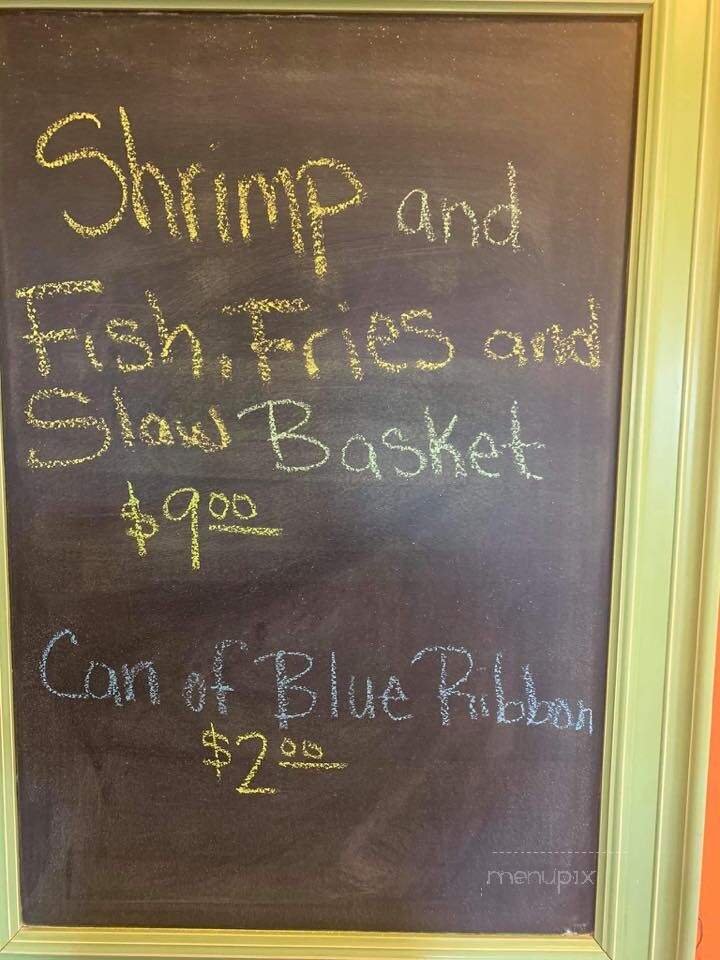 Shrimp and
Fish, Fries and
Slaw Basket
$9.00
Can of Blue Ribbon
$2.00
menupix